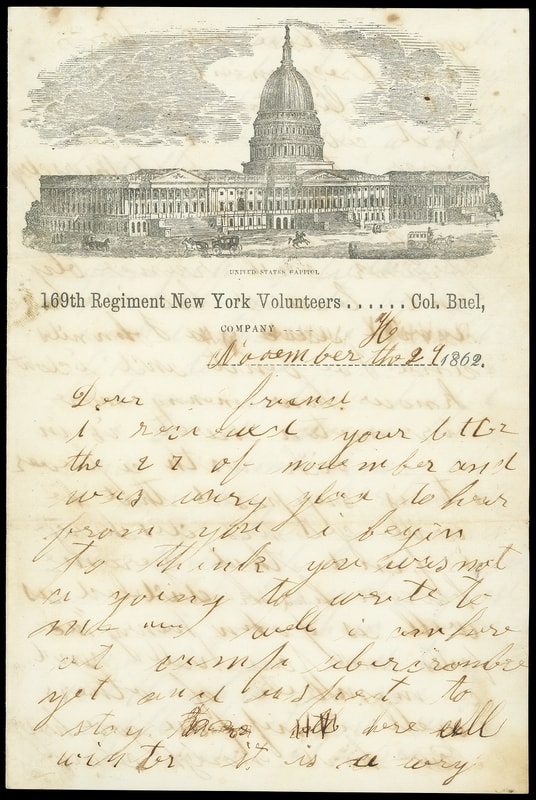 UNITED STATES CAPITOL
169th Regiment New York Volunteers . . . . . . Col. Buel,
COMPANY - - - H
November the 29 1862.
Dear friend
I received your letter
the 27 of november and
was very glad to hear
from you i begin
to think you was not
a going to write to
me well i am here
at camp abercrombre
yet and expect to
stay here all
winter it is a very